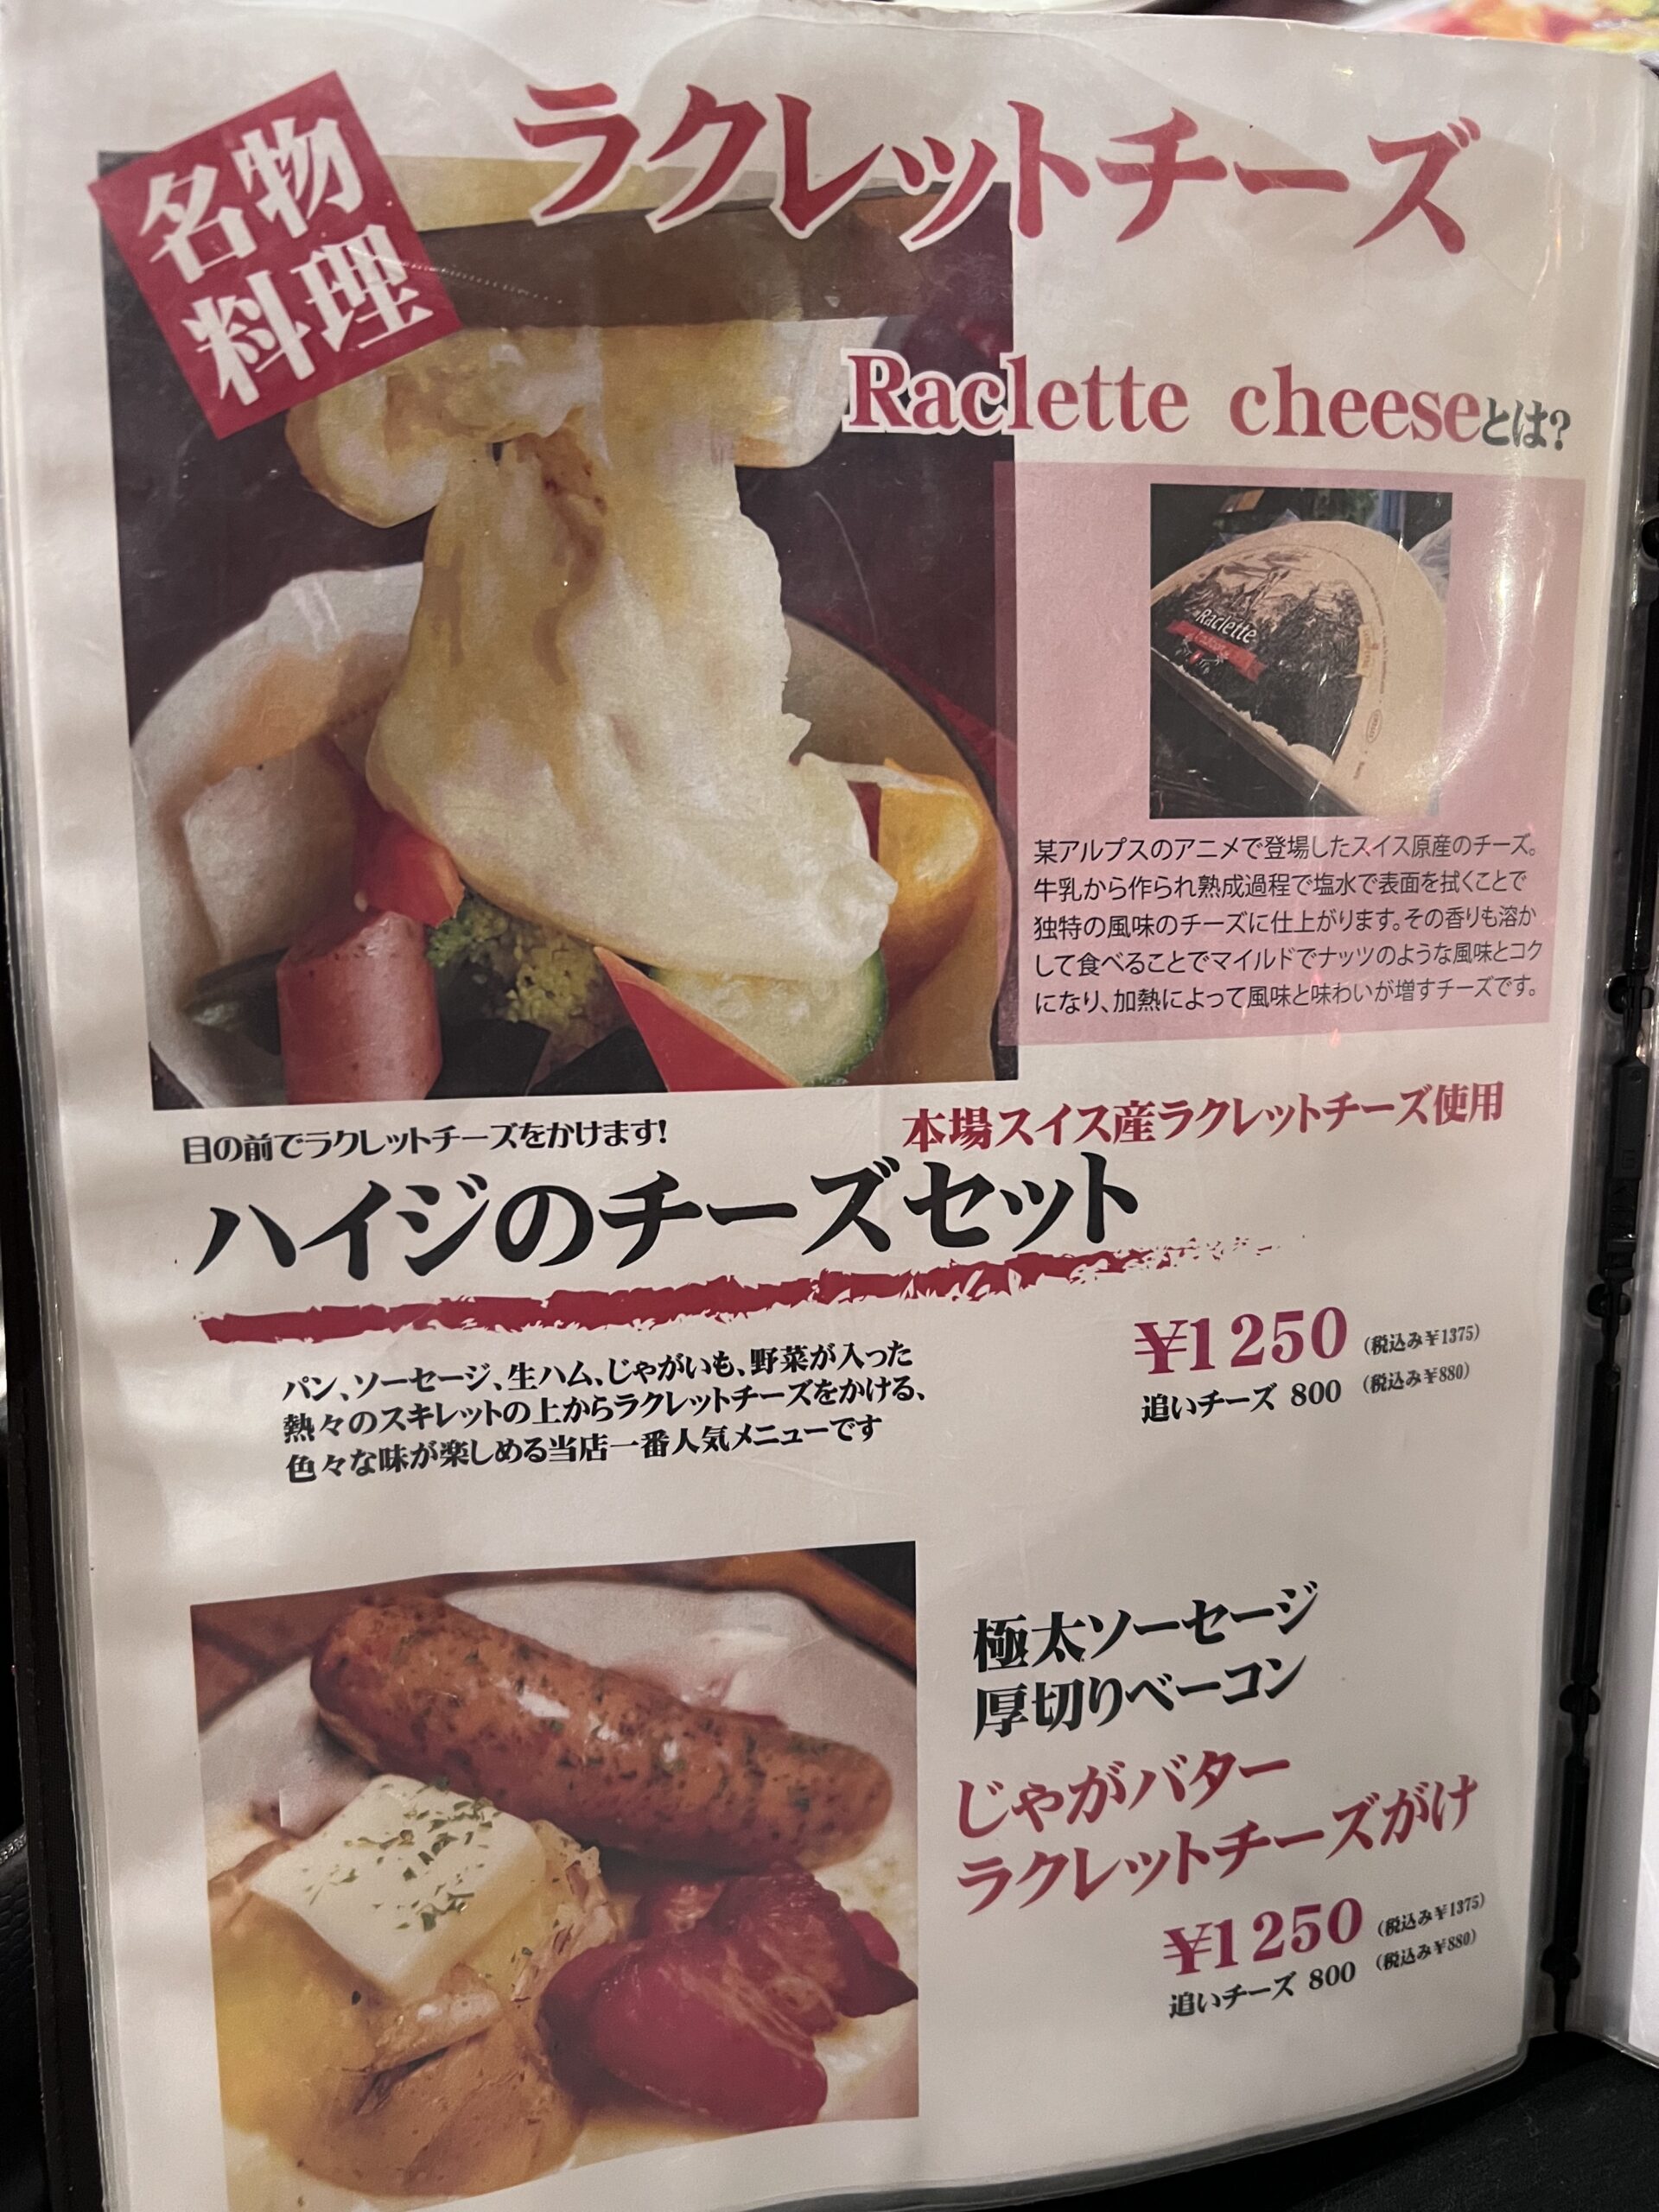 名物
料理
ラクレットチーズ
Raclette cheeseとは?
Raclette
某アルプスのアニメで登場したスイス原産のチーズ。
牛乳から作られ熟成過程で塩水で表面を拭くことで
独特の風味のチーズに仕上がります。その香りも溶か
して食べることでマイルドでナッツのような風味とコク
になり、加熱によって風味と味わいが増すチーズです。
目の前でラクレットチーズをかけます!
本場スイス産ラクレットチーズ使用
ハイジのチーズセット
¥1250 (税込み¥1375)
追いチーズ 800 (税込み¥880)
パン、ソーセージ、生ハム、じゃがいも、野菜が入った
熱々のスキレットの上からラクレットチーズをかける、
色々な味が楽しめる当店一番人気メニューです
極太ソーセージ
厚切りベーコン
じゃがバター
ラクレットチーズがけ
¥1250 (税込み¥1375)
追いチーズ 800 (税込み¥880)